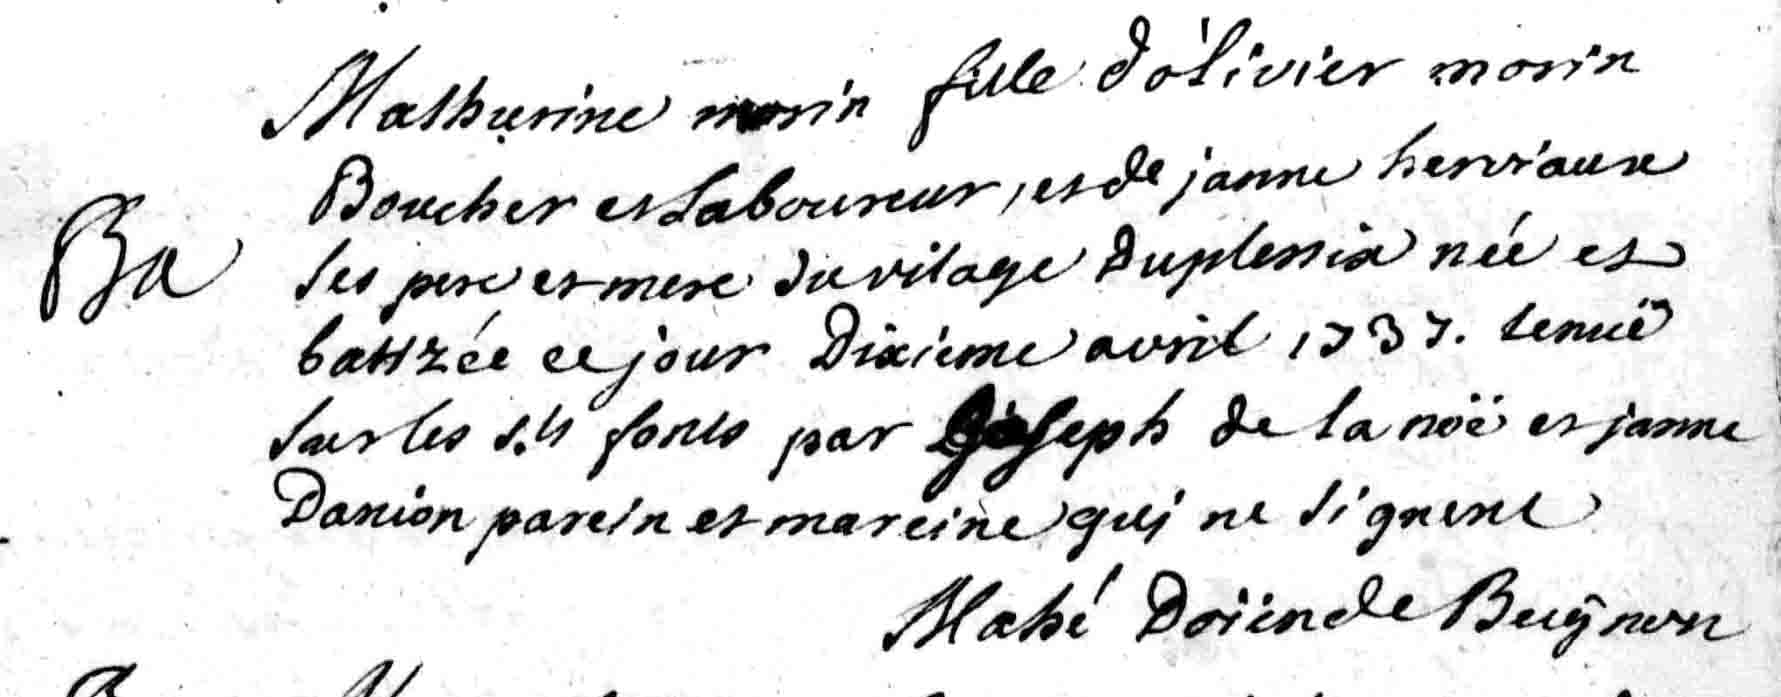 Mathurine morin fille d'olivier morin
Boucher et Laboureur, et de janne herviaux
Ba
ses pere et mere du vilage Duplessix née et
batizée ce jour Dixieme avril 1737. tenuë
sur les s.ts fonts par joseph de la noë et janne
Danion parein et mareine qui ne signent
Mahé Doïen de Beignon